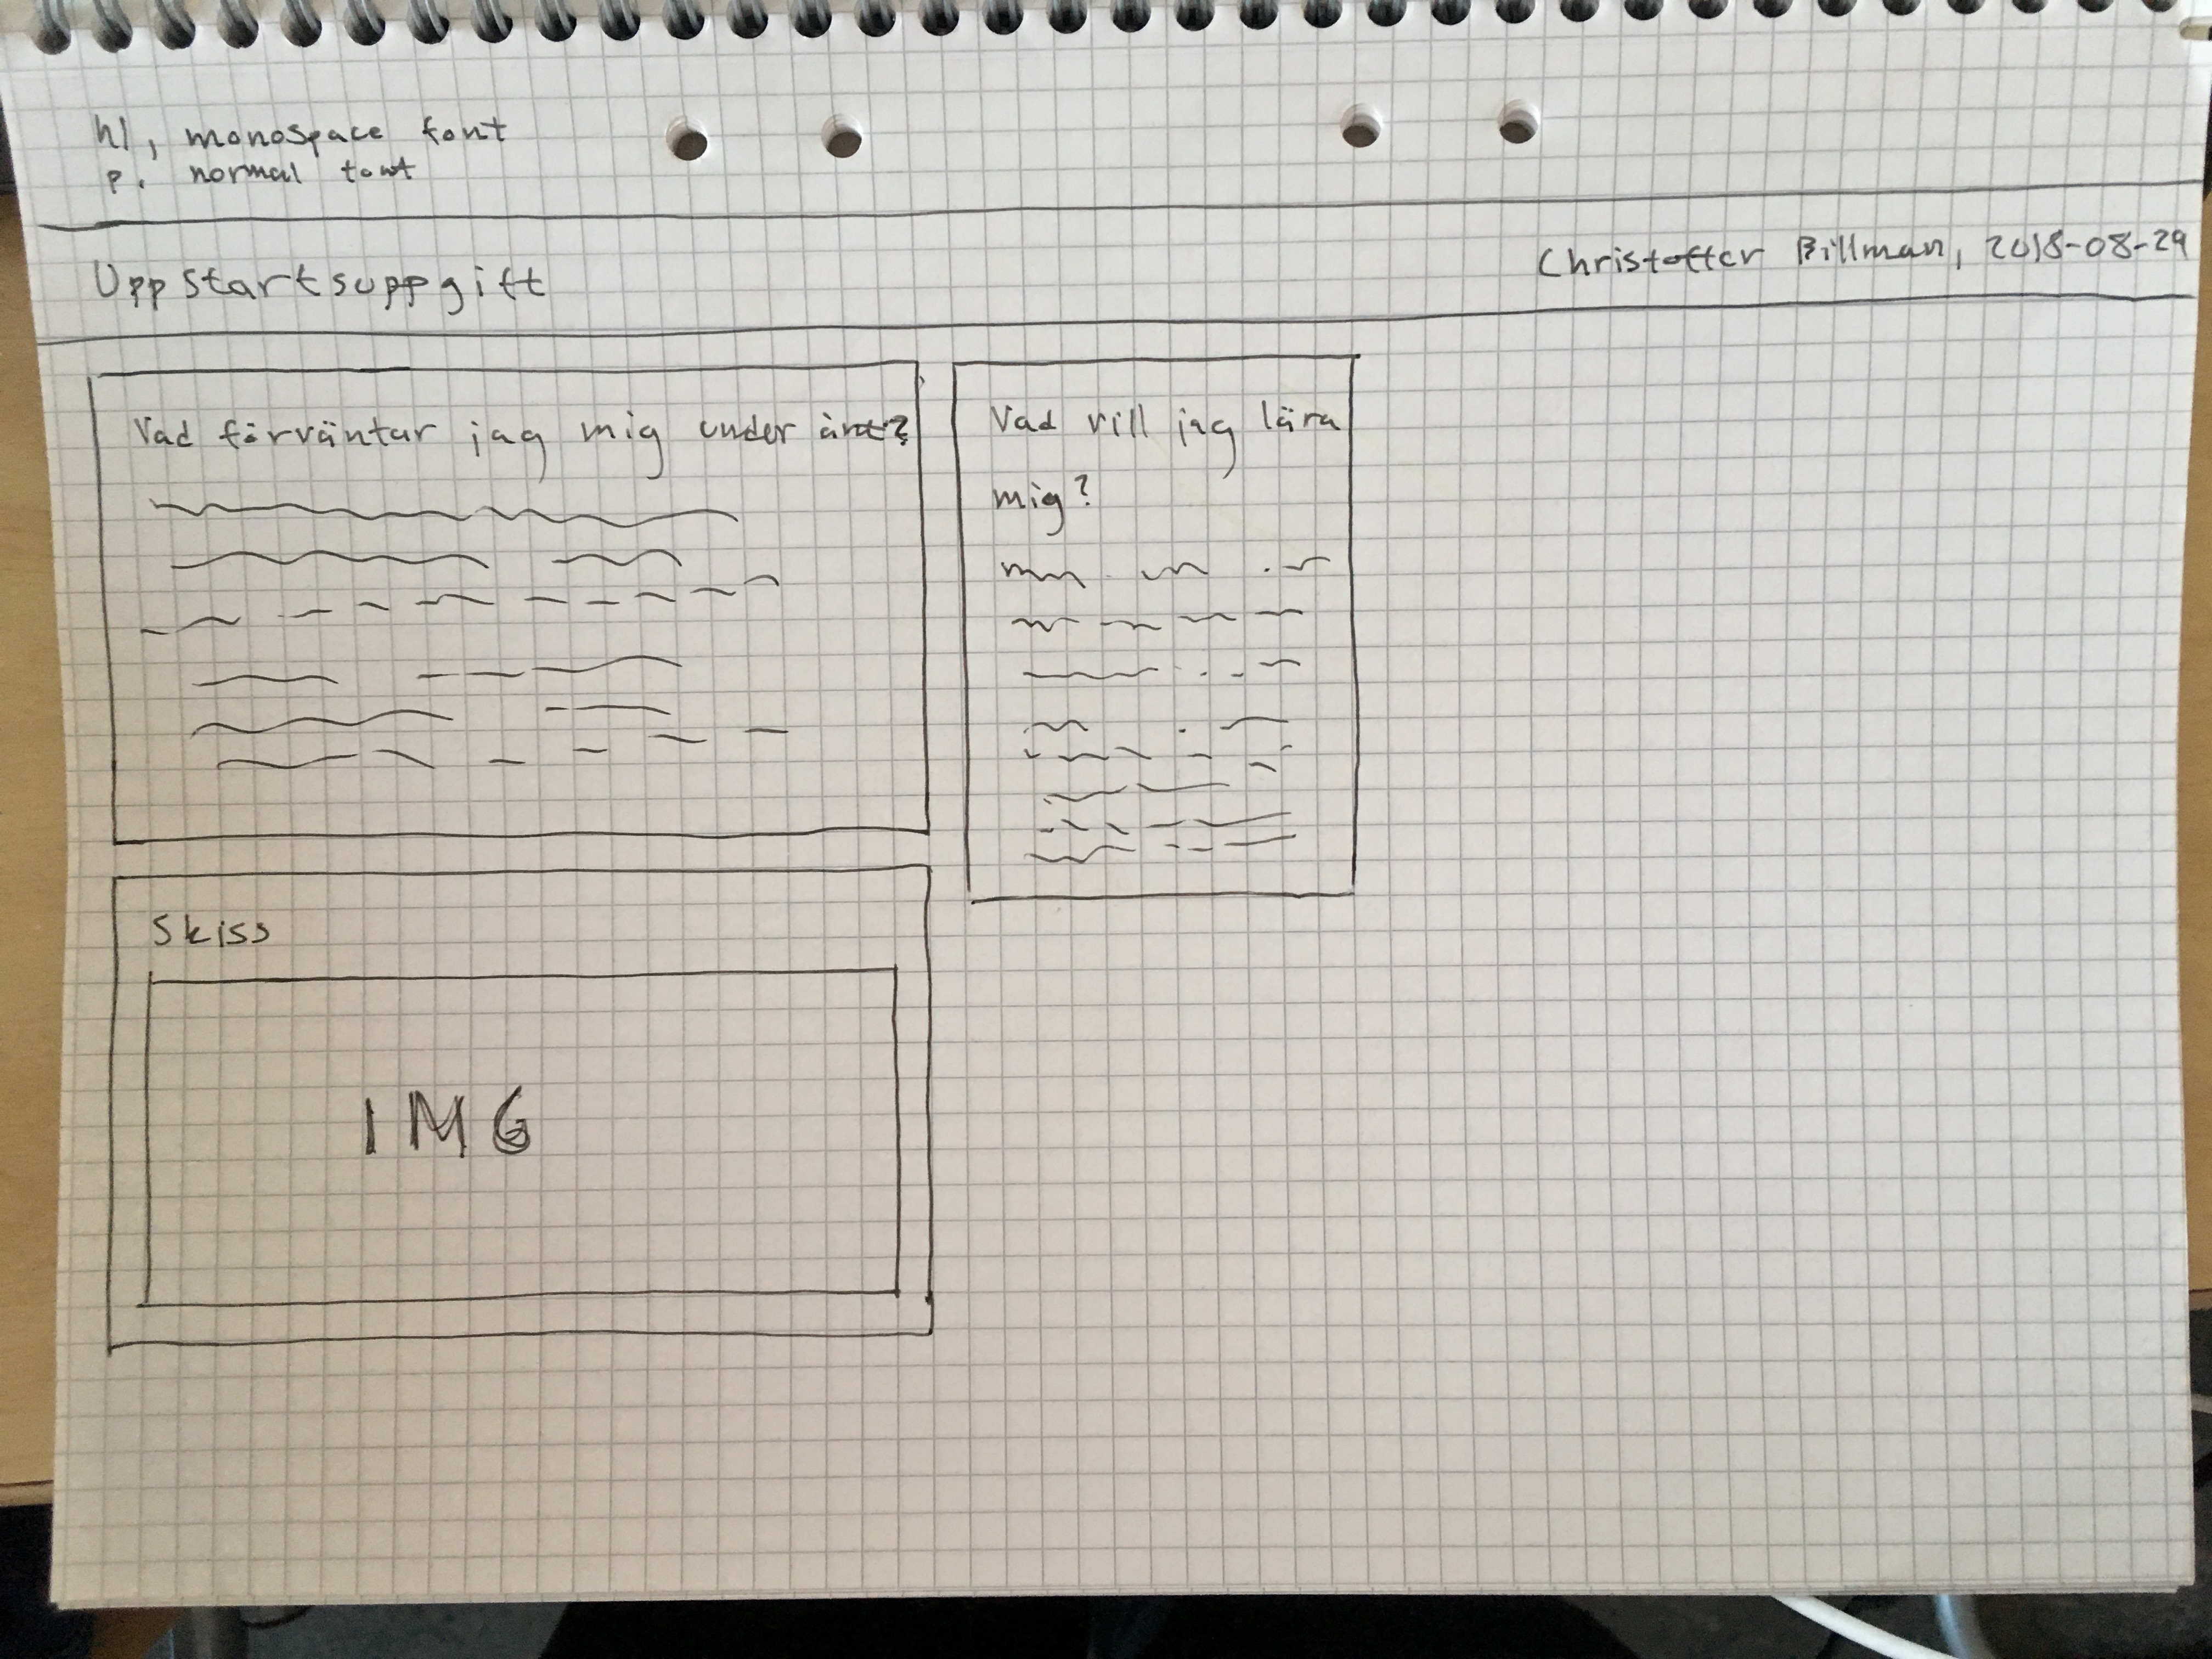 h1, monospace font
p. normal font
Uppstartsuppgift
Christoffer Billman, 2018-08-29
Vad förväntar jag mig under året?
Vad vill jag lära
mig?
Skiss
IMG